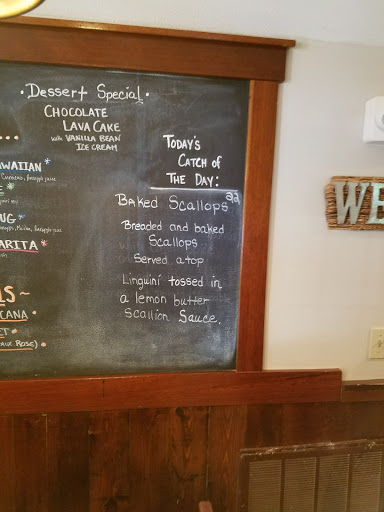 ·Dessert Special·
CHOCOLATE
LAVA CAKE
with VANILLA BEAN
ICE CREAM
TODAY'S
CATCH OF
THE DAY:
Baked Scallops 22
Breaded and baked
Scallops
Served atop
Linguini tossed in
a lemon butter
Scallion Sauce.
AWAIIAN*
Curacao, Pineapple juice
UG*
ARITA*
IS~
CANA·
ET·
ROSE)·
WE